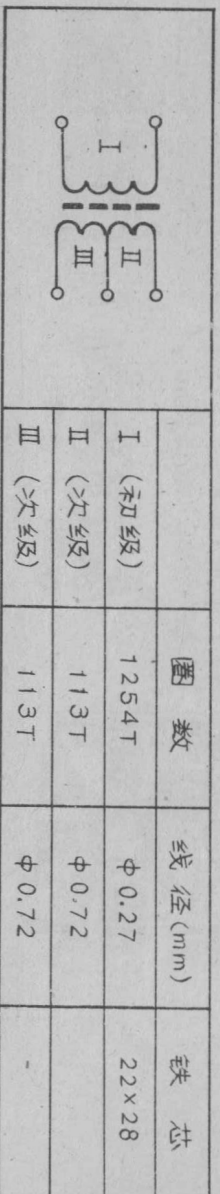 I
II
III
圈数 线径(mm) 铁芯
I (初级) 1254T φ0.27 22×28
II (次级) 113T φ0.72
III (次级) 113T φ0.72 -